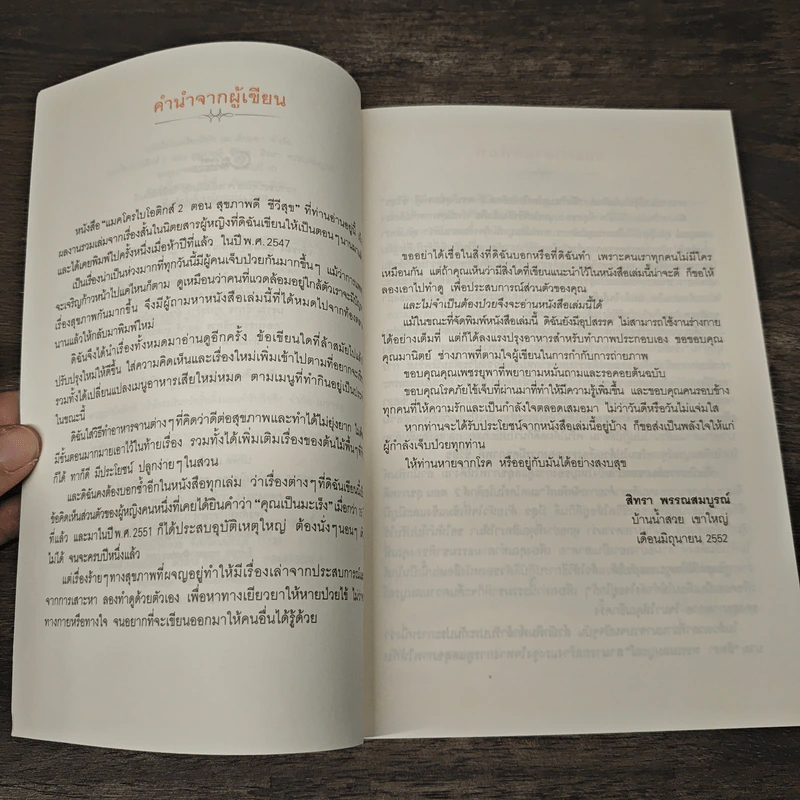 คำนำจากผู้เขียน
หนังสือ "แมคโครไบโอติกส์ 2 ตอน สุขภาพดี ชีวีสุข" ที่ท่านอ่านอยู่นี้
ผลงานรวมเล่มจากเรื่องสั้นในนิตยสารผู้หญิงที่ดิฉันเขียนให้เป็นตอนๆ
และได้เคยพิมพ์ไปครั้งหนึ่งเมื่อห้าปีที่แล้ว ในปี พ.ศ. 2547
เป็นเรื่องน่าเป็นห่วงมากที่ทุกวันนี้มีผู้คนเจ็บป่วยกันมากขึ้นๆ แม้ว่า
จะเจริญก้าวหน้าไปแค่ไหนก็ตาม ดูเหมือนว่าคนที่แวดล้อมอยู่ใกล้ตัวเราจะ
เรื่องสุขภาพกันมากขึ้น จึงมีผู้ถามหาหนังสือเล่มนี้ที่ได้หมดไปจาก
นานแล้วให้กลับมาพิมพ์ใหม่
ดิฉันจึงได้นำเรื่องทั้งหมดมาอ่านดูอีกครั้ง ข้อเขียนใดที่ล้าสมัยไป
ปรับปรุงใหม่ให้ดีขึ้น ใส่ความคิดเห็นและเรื่องใหม่เพิ่มเข้าไปตามที่อยาก
รวมทั้งได้เปลี่ยนแปลงเมนูอาหารเสียใหม่หมด ตามเมนูที่ทำกินอยู่เป็น
ในขณะนี้
ดิฉันใส่วิธีทำอาหารจานต่างๆ ที่คิดว่าดีต่อสุขภาพและทำได้ไม่ยุ่งยาก
มีขั้นตอนมากมายเอาไว้ในท้ายเรื่อง รวมทั้งได้เพิ่มเติมเรื่องของต้นไม้พื้นๆ
ก็ได้ ทาก็ดี มีประโยชน์ ปลูกง่ายๆ ในสวน
และดิฉันคงต้องบอกซ้ำอีกในหนังสือทุกเล่ม ว่าเรื่องต่างๆ ที่ดิฉันเขียน
ข้อคิดเห็นส่วนตัวของผู้หญิงคนหนึ่งที่เคยได้ยินคำว่า "คุณเป็นมะเร็ง" เมื่อกว่า
ที่แล้ว และมาในปี พ.ศ. 2551 ก็ได้ประสบอุบัติเหตุใหญ่ ต้องนั่งๆ นอนๆ
ไม่ได้ จนจะครบปีหนึ่งแล้ว
แต่เรื่องร้ายๆ ทางสุขภาพที่ผจญอยู่ทำให้มีเรื่องเล่าจากประสบการณ์
จากการเสาะหา ลองทำดูด้วยตัวเอง เพื่อหาทางเยียวยาให้หายป่วยไข้ ไม่ว่า
ทางกายหรือทางใจ จนอยากที่จะเขียนออกมาให้คนอื่นได้รู้ด้วย
ขออย่าได้เชื่อในสิ่งที่ดิฉันบอกหรือที่ดิฉันทำ เพราะคนเราทุกคนไม่มีใคร
เหมือนกัน แต่ถ้าคุณเห็นว่ามีสิ่งใดที่เขียนแนะนำไว้ในหนังสือเล่มนี้น่าจะดี ก็ขอให้
ลองเอาไปทำดู เพื่อประสบการณ์ส่วนตัวของคุณ
และไม่จำเป็นต้องป่วยจึงจะอ่านหนังสือเล่มนี้ได้
แม้ในขณะที่จัดพิมพ์หนังสือเล่มนี้ ดิฉันยังมีอุปสรรค ไม่สามารถใช้งานร่างกาย
ได้อย่างเต็มที่ แต่ก็ได้ลงแรงปรุงอาหารสำหรับทำภาพประกอบเอง ขอขอบคุณ
คุณมานิตย์ ช่างภาพที่ตามใจผู้เขียนในการกำกับการถ่ายภาพ
ขอบคุณคุณเพชรยุพาที่พยายามหมั่นถามและรอคอยต้นฉบับ
ขอบคุณโรคภัยไข้เจ็บที่ผ่านมาที่ทำให้มีความรู้เพิ่มขึ้น และขอบคุณคนรอบข้าง
ทุกคนที่ให้ความรักและเป็นกำลังใจตลอดเสมอมา ไม่ว่าวันดีหรือวันไม่แจ่มใส
หากท่านจะได้รับประโยชน์จากหนังสือเล่มนี้อยู่บ้าง ก็ขอส่งเป็นพลังใจให้แก่
ผู้กำลังเจ็บป่วยทุกท่าน
ให้ท่านหายจากโรค หรืออยู่กับมันได้อย่างสงบสุข
สิทรา พรรณสมบูรณ์
บ้านน้ำสวย เขาใหญ่
เดือนมิถุนายน 2552